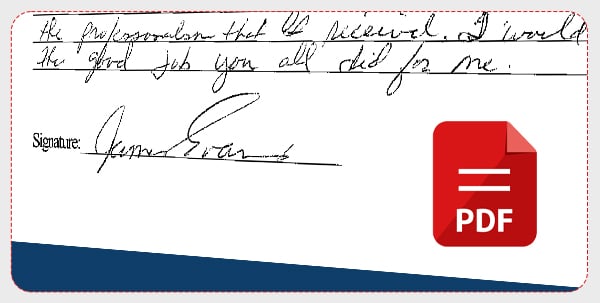 the professionalism that I received. I would
the good job you all did for me.
Signature: James Evans
PDF